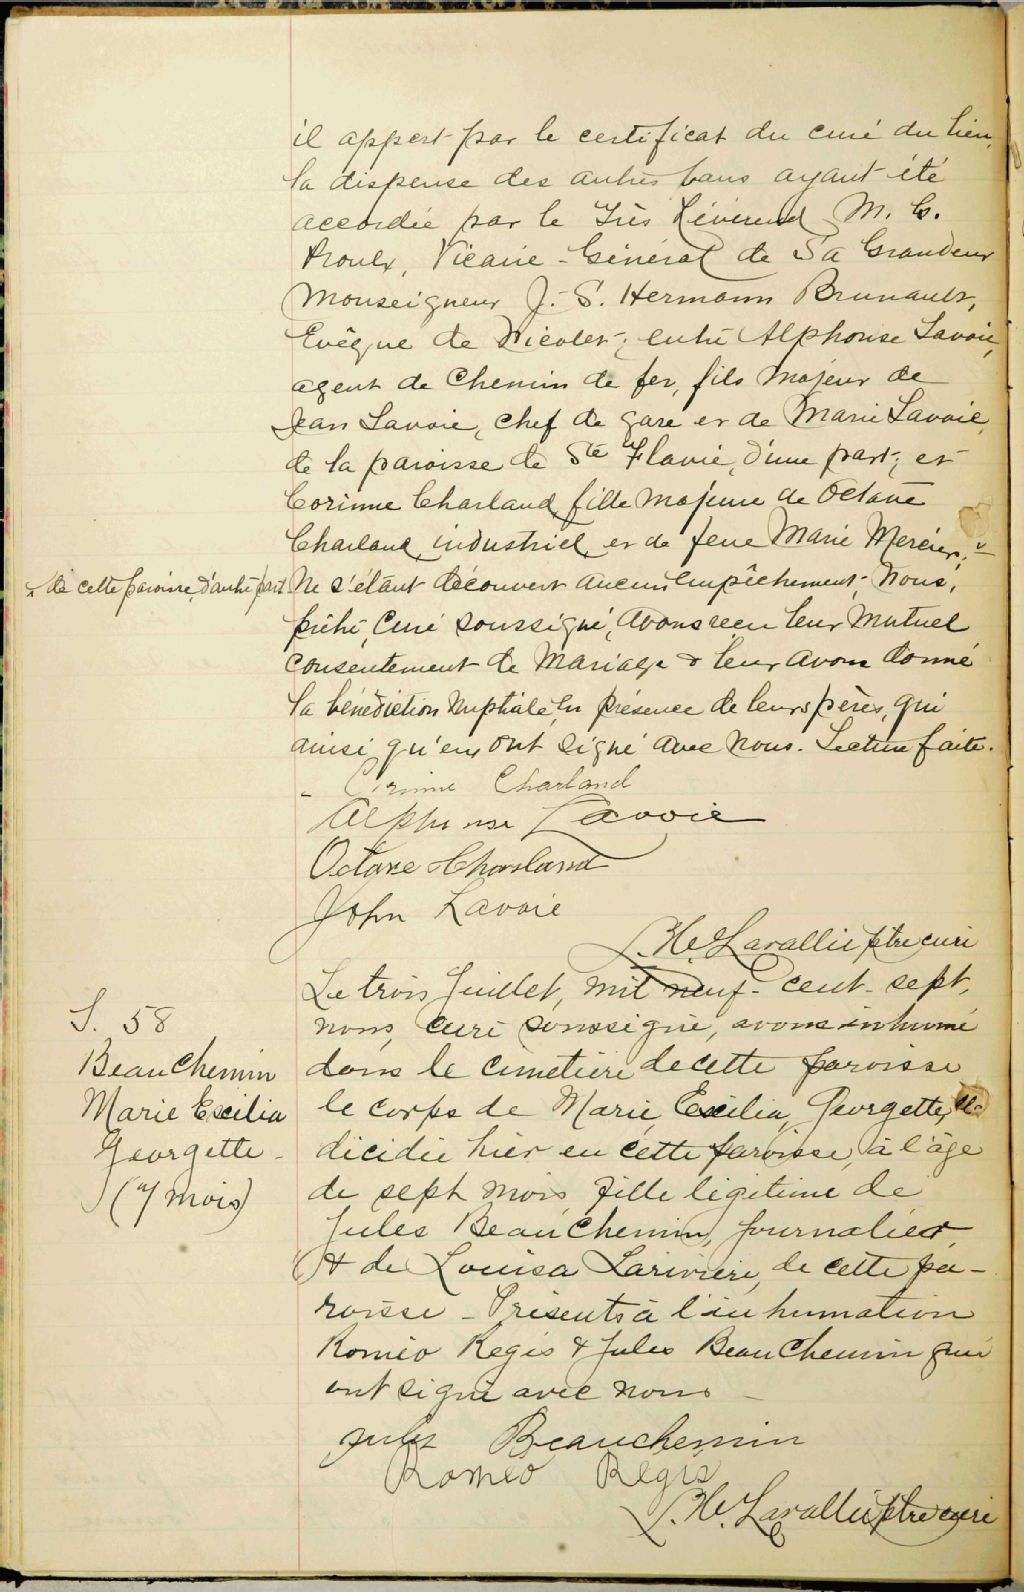 il appert par le certificat du curé du lieu,
la dispense des autres bans ayant été
accordée par le Très Révérend M. G.
Proulx, Vicaire-Général de Sa Grandeur
Monseigneur J.-S. Hermann Brunault,
Evêque de Nicolet; entre Alphonse Lavoie,
agent de chemin de fer, fils majeur de
Jean Lavoie, chef de gare et de Marie Lavoie,
de la paroisse de Ste Flavie, d'une part; et
Corinne Charland, fille majeure de Octave
Charland, industriel, et de feue Marie Mercier,
x de cette paroisse, d'autre part.
Ne s'étant découvert aucun empêchement, Nous,
prêtre, curé soussigné, avons reçu leur mutuel
consentement de mariage & leur avons donné
la bénédiction nuptiale en présence de leurs pères, qui
ainsi qu'eux ont signé avec nous. Lecture faite.
Corinne Charland
Alphonse Lavoie
Octave Charland
John Lavoie
Lavallée ptre curé
S. 58
Beauchemin
Marie Exilia
Georgette
(7 mois)
Le trois Juillet, mil neuf-cent-sept,
nous, curé soussigné, avons inhumé
dans le cimetière de cette paroisse
le corps de Marie, Exilia, Georgette,
décédée hier en cette paroisse, à l'âge
de sept mois fille légitime de
Jules Beauchemin, journalier,
& de Louisa Larivière, de cette pa-
roisse - Présents à l'inhumation
Roméo Regis & Jules Beauchemin qui
ont signé avec nous -
Jules Beauchemin
Romeo Regis
Lavallée ptre curé